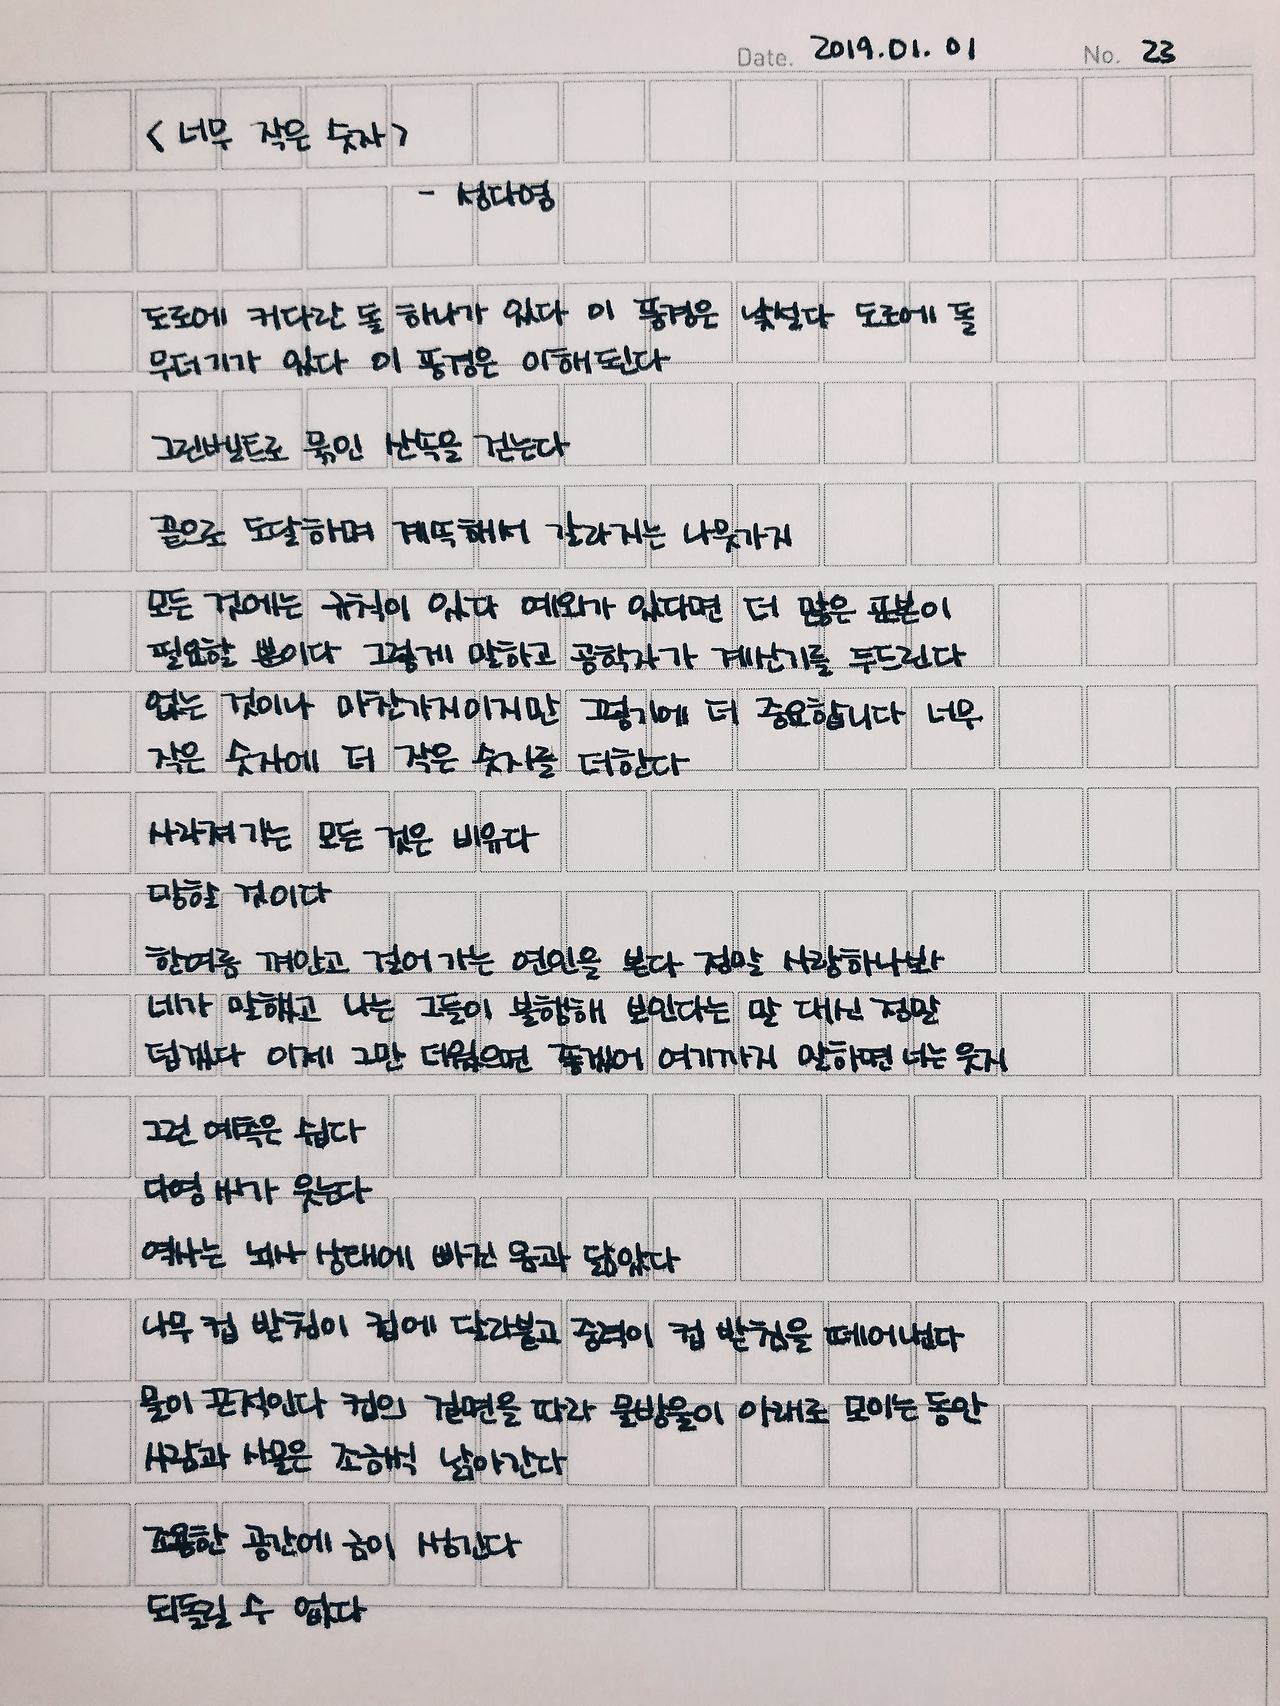 Date. 2019.01.01 No. 23
<너무 작은 숫자>
- 성다영
도로에 커다란 돌 하나가 있다 이 풍경은 낯설다 도로에 돌
무더기가 있다 이 풍경은 이해된다
그린벨트로 묶인 산속을 걷는다
끝으로 도달하며 계속해서 갈라지는 나뭇가지
모든 것에는 규칙이 있다 예외가 있다면 더 많은 표본이
필요할 뿐이다 그렇게 말하고 공학자가 계산기를 두드린다
없는 것이나 마찬가지이지만 그렇기에 더 중요합니다 너무
작은 숫자에 더 작은 숫자를 더한다
사라져가는 모든 것은 비유다
망할 것이다
한여름 껴안고 걸어가는 연인을 본다 정말 사랑하나봐
네가 말했고 나는 그들이 불행해 보인다는 말 대신 정말
덥겠다 이제 그만 더웠으면 좋겠어 여기까지 말하면 너는 웃지
그런 예측은 쉽다
다영 씨가 웃는다
역사는 뇌사 상태에 빠진 몸과 닮았다
나무 컵 받침이 컵에 달라붙고 중력이 컵 받침을 떼어낸다
물이 끈적인다 컵의 겉면을 따라 물방울이 아래로 모이는 동안
사람과 사물은 조금씩 낡아간다
조용한 공간에 금이 생긴다
되돌릴 수 없다